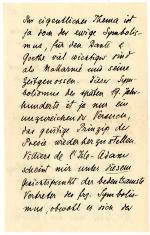 Ihr eigentliches Thema ist
ja dem der ewige Symbolis-
mus, für den Dante &
Goethe viel wichtiger sind
als Mallarmé und seine
Zeitgenossen. Dieser Sym-
bolismus des späten 19. Jahr-
hunderts ist ja nur ein
unzureichender Versuch,
das geistige Prinzip der
Poesie wiederherzustellen.
Villiers de l'Isle-Adam
scheint mir unter diesem
Gesichtspunkt der bedeutendste
Vertreter des frz. Symbolis-
mus, obwohl er sich der